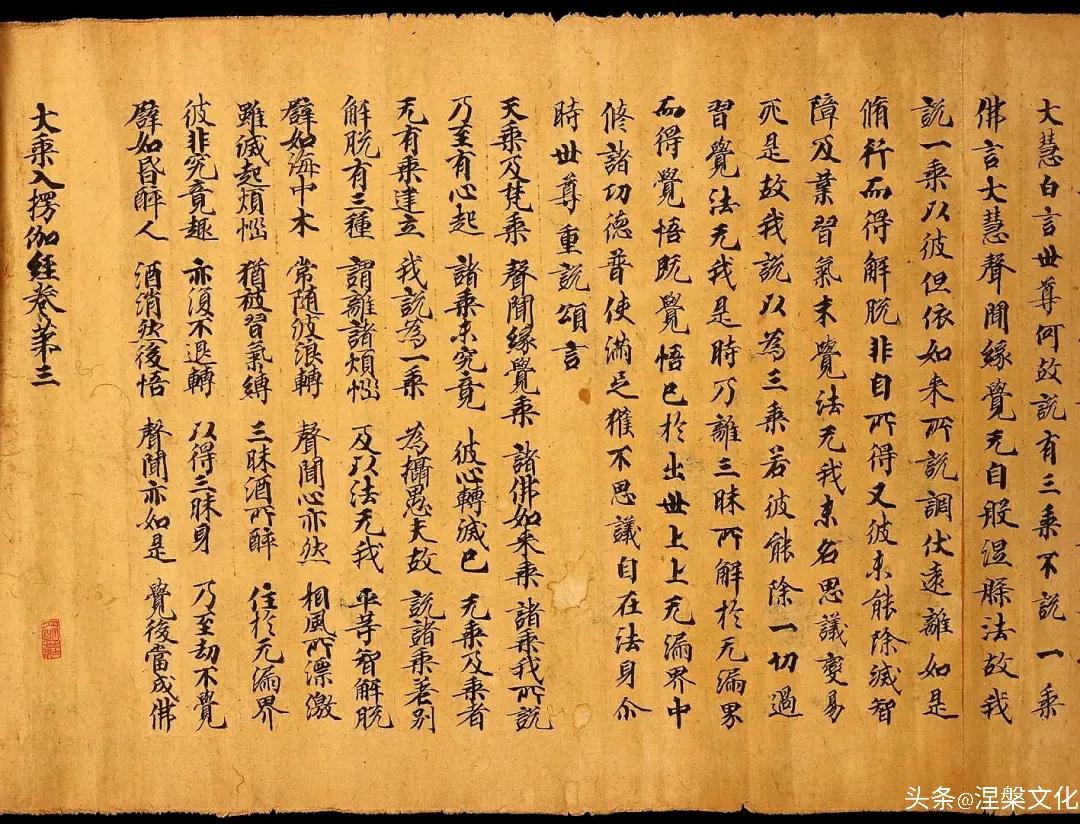 大慧白言世尊何故說有三乘不說一乘
佛言大慧聲聞緣覺无自般涅槃法故我
說一乘以彼但依如来所說調伏遠離如是
脩行而得解脫非自所得又彼未能除滅智
障及業習氣未覺法无我未名思議變易
死是故我說以為三乘若彼能除一切過
習覺法无我是時乃離三昧所解於无漏界
而得覺悟既覺悟已於出世上上无漏界中
修諸功德普使滿足獲不思議自在法身尒
時世尊重說頌言
天乘及梵乘 聲聞緣覺乘 諸佛如来乘 諸乘我所說
乃至有心起 諸乘未究竟 彼心轉滅已 无乘及乘者
无有乘建立 我說為一乘 為攝愚夫故 說諸乘差別
解脫有三種 謂離諸煩惱 及以法无我 平等智解脫
譬如海中木 常随波浪轉 聲聞心亦然 相風所漂激
雖滅起煩惱 猶被習氣縛 三昧酒所醉 住於无漏界
彼非究竟趣 亦復不退轉 以得三昧身 乃至劫不覺
譬如昏醉人 酒消然後悟 聲聞亦如是 覺後當成佛
大乘入楞伽經卷第三
头条@涅槃文化